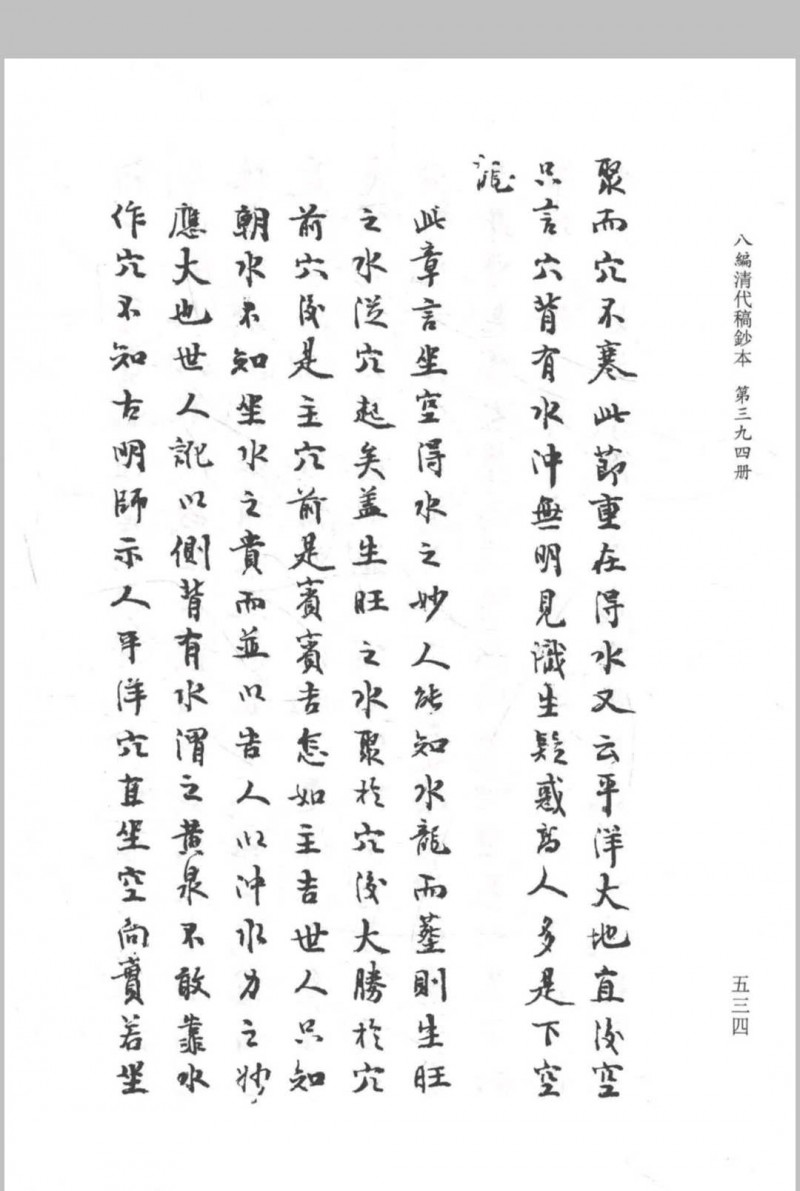 八編清代稿鈔本　第三九四册
五三四
聚而穴不寒此節重在得水又云平洋大地直後空
只言穴背有水沖無明見識生疑惑高人多是下空
龍
此章言坐空得水之妙人能知水龍而葬則生旺
之水從穴起矣蓋生旺之水聚於穴後大勝於穴
前穴後是主穴前是賓賓吉怎如主吉世人只知
朝水不知坐水之貴而並以告人以沖水力之妙
應大也世人訛以側背有水謂之黄泉不敢靠水
作穴不知古明師示人平洋穴直坐空向實若坐